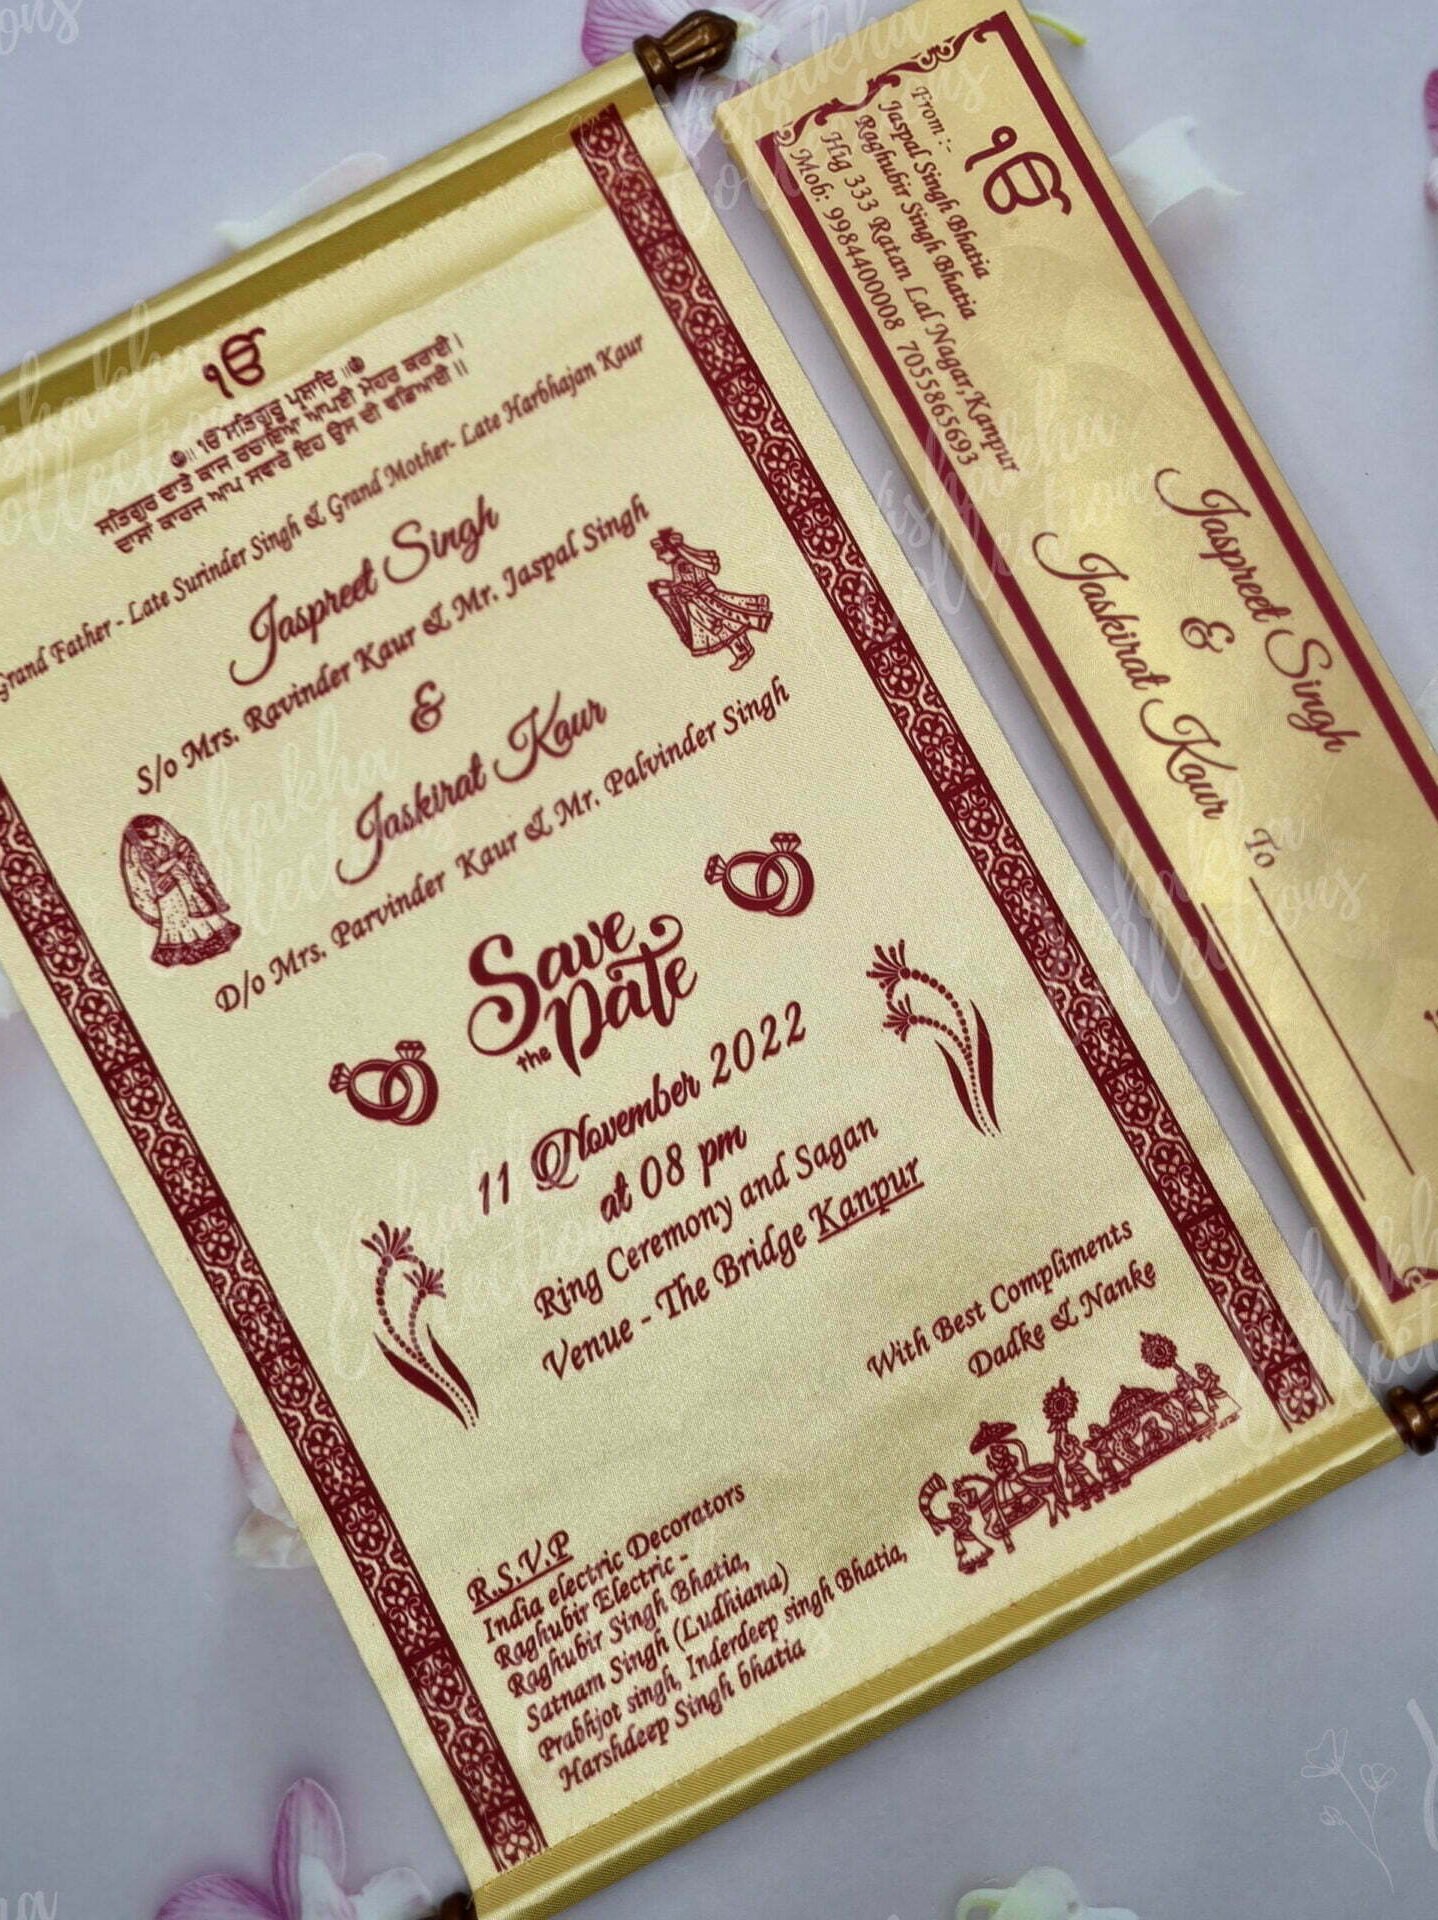 ੴ
॥ ੴ ਸਤਿਗੁਰ ਪ੍ਰਸਾਦਿ ॥
ਸਤਿਗੁਰ ਦਾਤੇ ਕਾਜ ਰਚਾਇਆ ਆਪਣੀ ਮੇਹਰ ਕਰਾਈ ।
ਦਾਸਾਂ ਕਾਰਜ ਆਪ ਸਵਾਰੇ ਇਹ ਉਸ ਦੀ ਵਡਿਆਈ ॥
Grand Father - Late Surinder Singh & Grand Mother- Late Harbhajan Kaur
Jaspreet Singh
S/o Mrs. Ravinder Kaur & Mr. Jaspal Singh
&
Jaskirat Kaur
D/o Mrs. Parvinder Kaur & Mr. Palvinder Singh
Save
the Date
11 November 2022
at 08 pm
Ring Ceremony and Sagan
Venue - The Bridge Kanpur
With Best Compliments
Dadke & Nanke
R.S.V.P
India electric Decorators
Raghubir Electric -
Raghubir Singh Bhatia,
Satnam Singh (Ludhiana)
Prabhjot singh, Inderdeep singh Bhatia,
Harshdeep Singh bhatia
ੴ
From :-
Jaspal Singh Bhatia
Raghubir Singh Bhatia
Hig 333 Ratan Lal Nagar,Kanpur
Mob: 9984400008 7055865693
Jaspreet Singh
&
Jaskirat Kaur
To